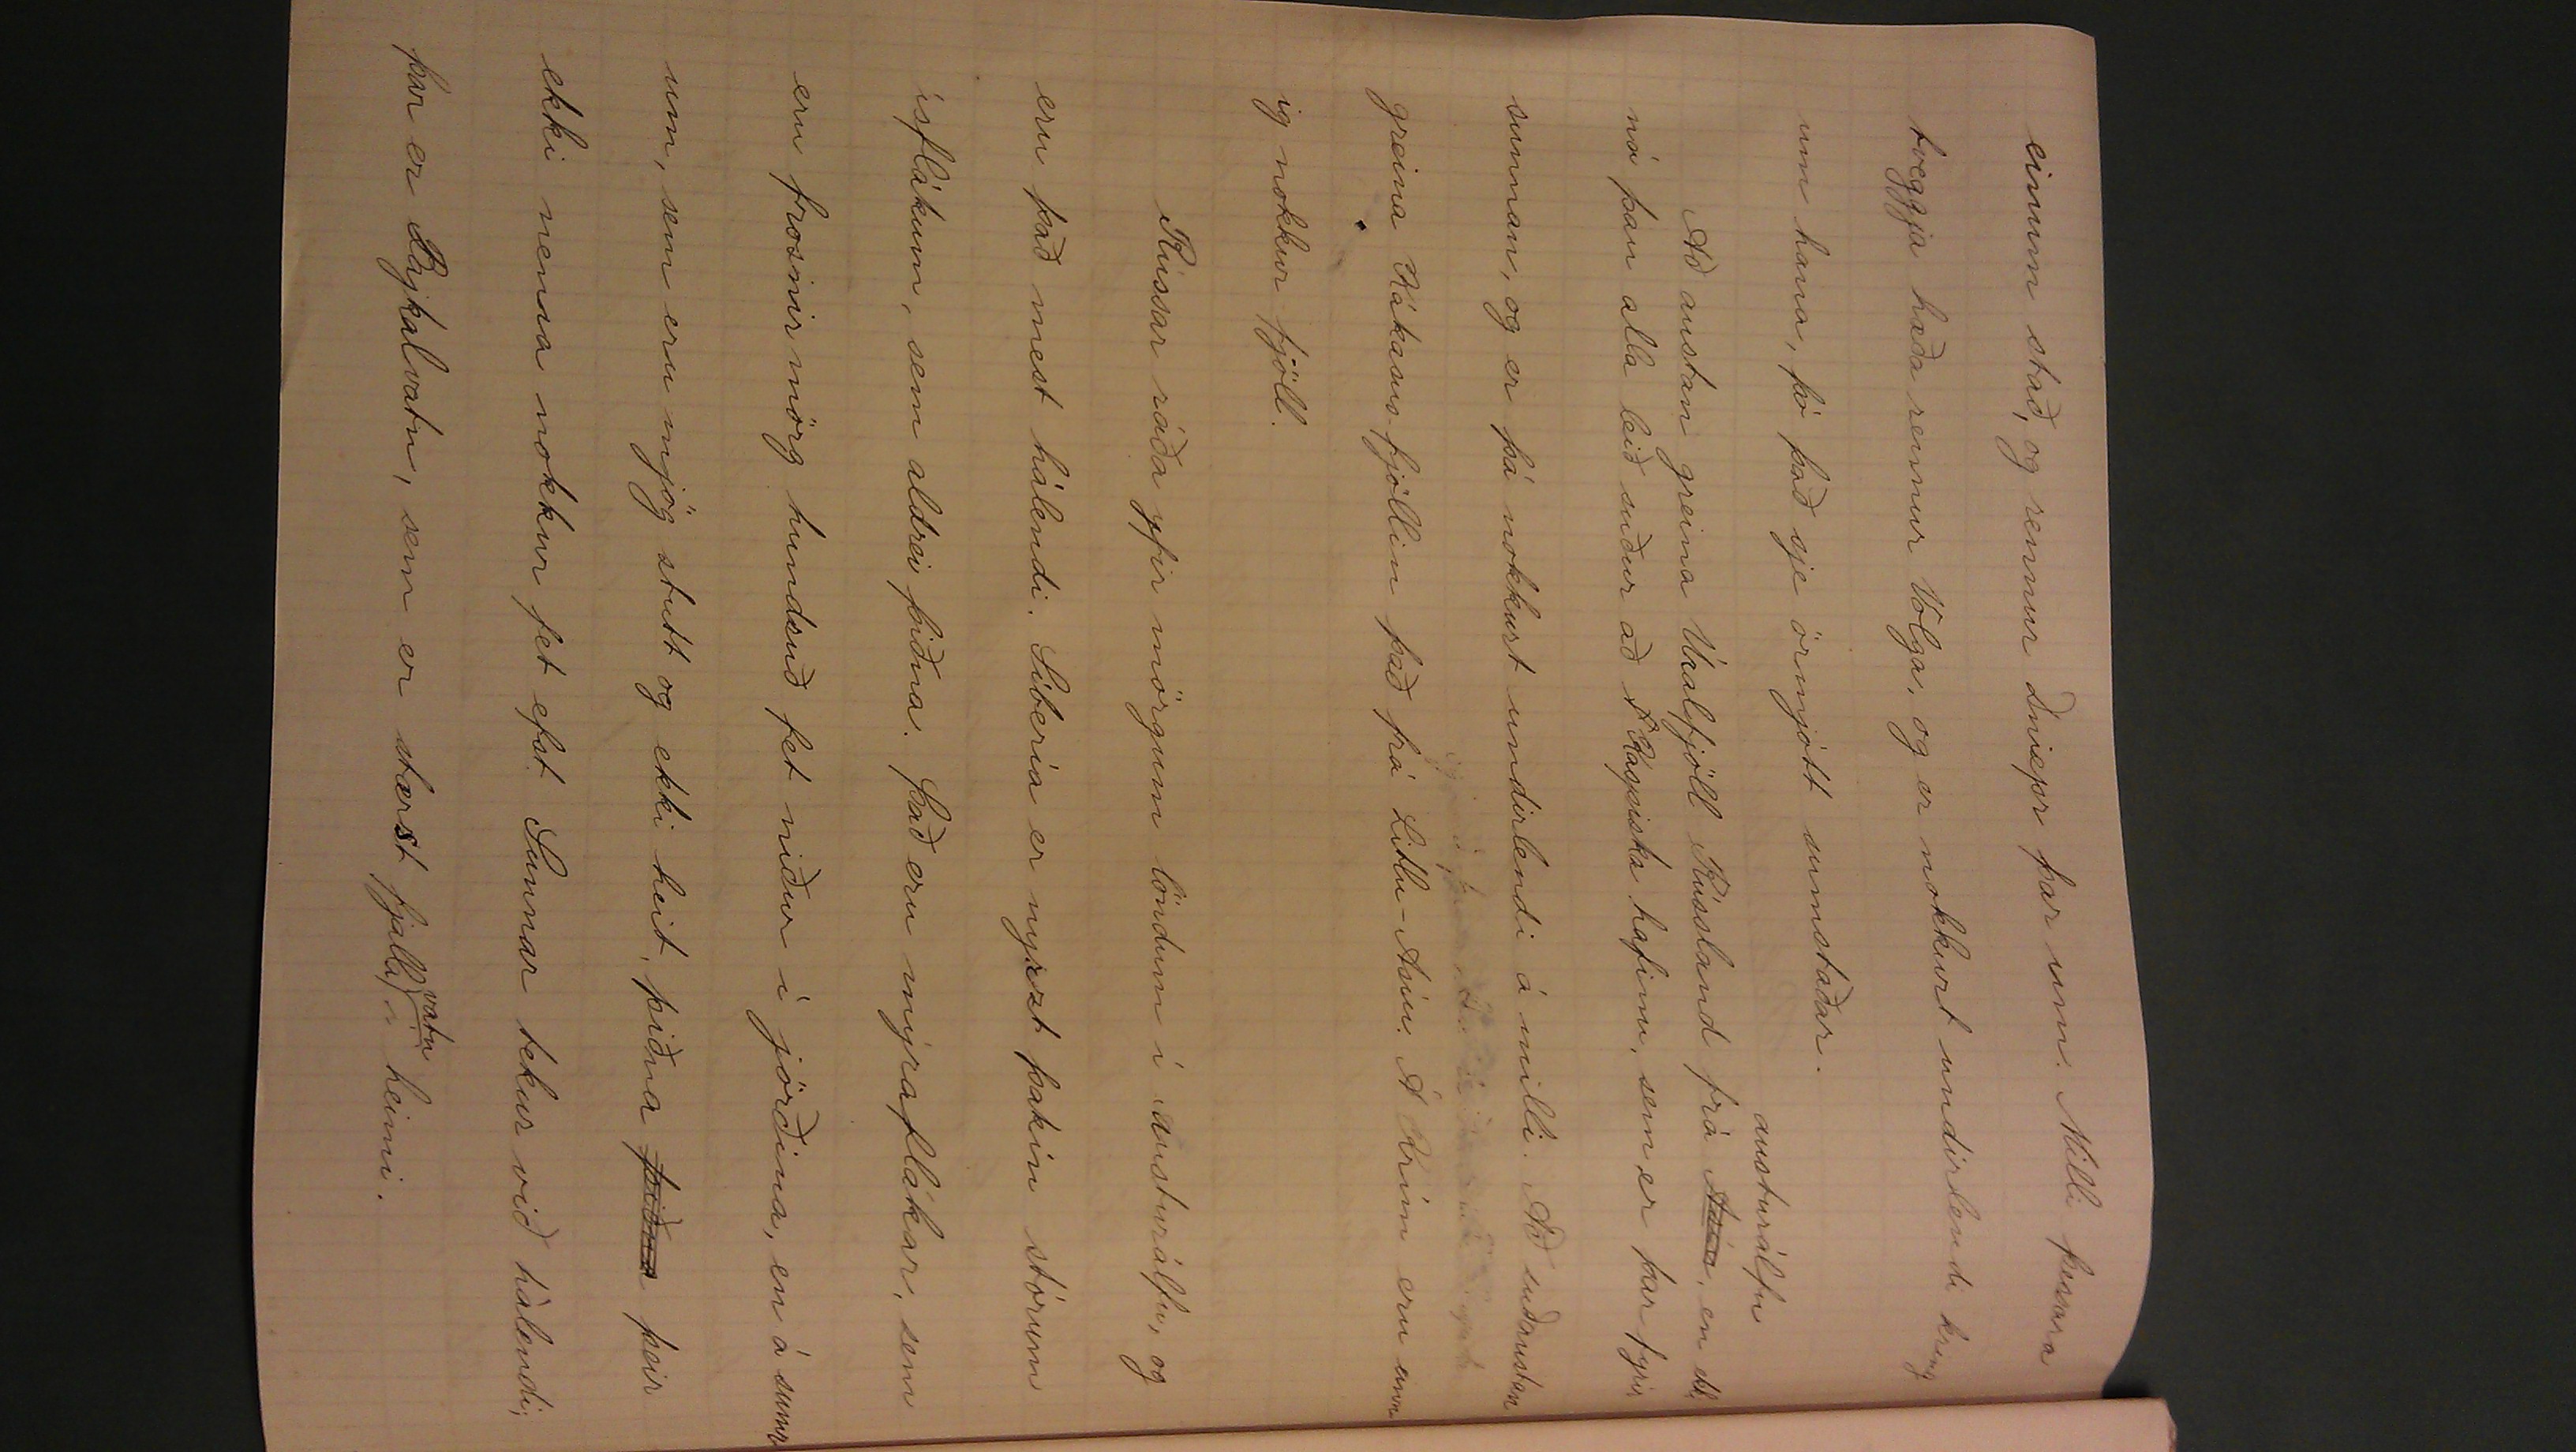 einum stað, og rennur Dniepr þar um. Milli þessara
tveggja hæða rennur Volga, og er nokkurt undirlendi kring
um hana, þó það sje örmjótt sumstaðar.
austurálfu
Að austan greina Úralfjöll Rússland frá Asíu, en ekki
ná þau alla leið suður að Kaspiska hafinu, sem er þar fyrir
sunnan, og er þá nokkurt undirlendi á milli. Að suðaustan
greina Kákasusfjöllin það frá Litlu-Asíu. Á Krím eru einn
ig nokkur fjöll.
Rússar ráða yfir mörgum löndum í austurálfu, og
eru það mest hálendi. Síbería er nyrzt þakin stórum
ísflákum, sem aldrei þiðna. Það eru mýraflákar, sem
eru frosnir mörg hundruð fet niður í jörðina, en á sumr
um, sem eru mjög stutt og ekki heit, þiðna þiðna þeir
ekki nema nokkur fet efst. Sunnar tekur við hálendi;
þar er Bajkalvatn, sem er stærst fjalla vatn í heimi.